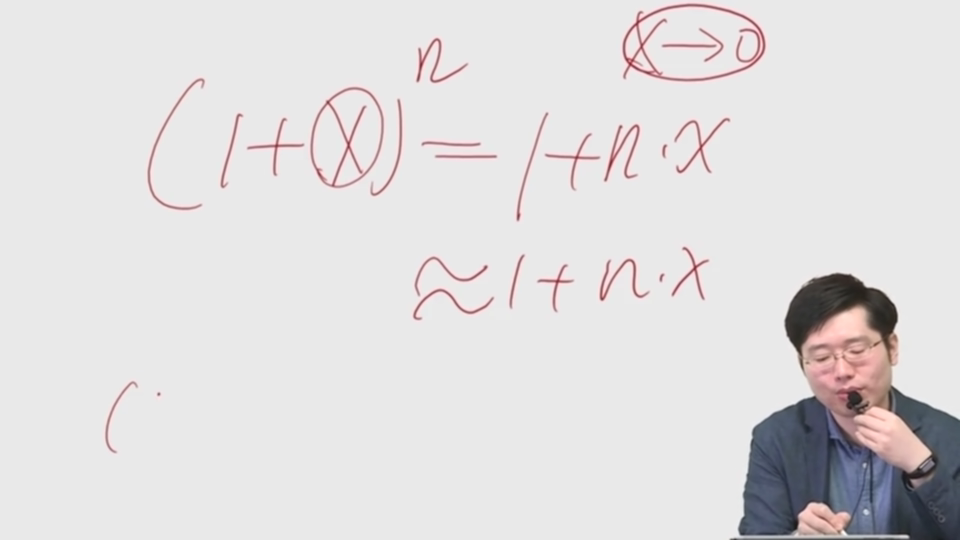 x→0
(1+x)^n = 1+n·x
≈1+n·x
(